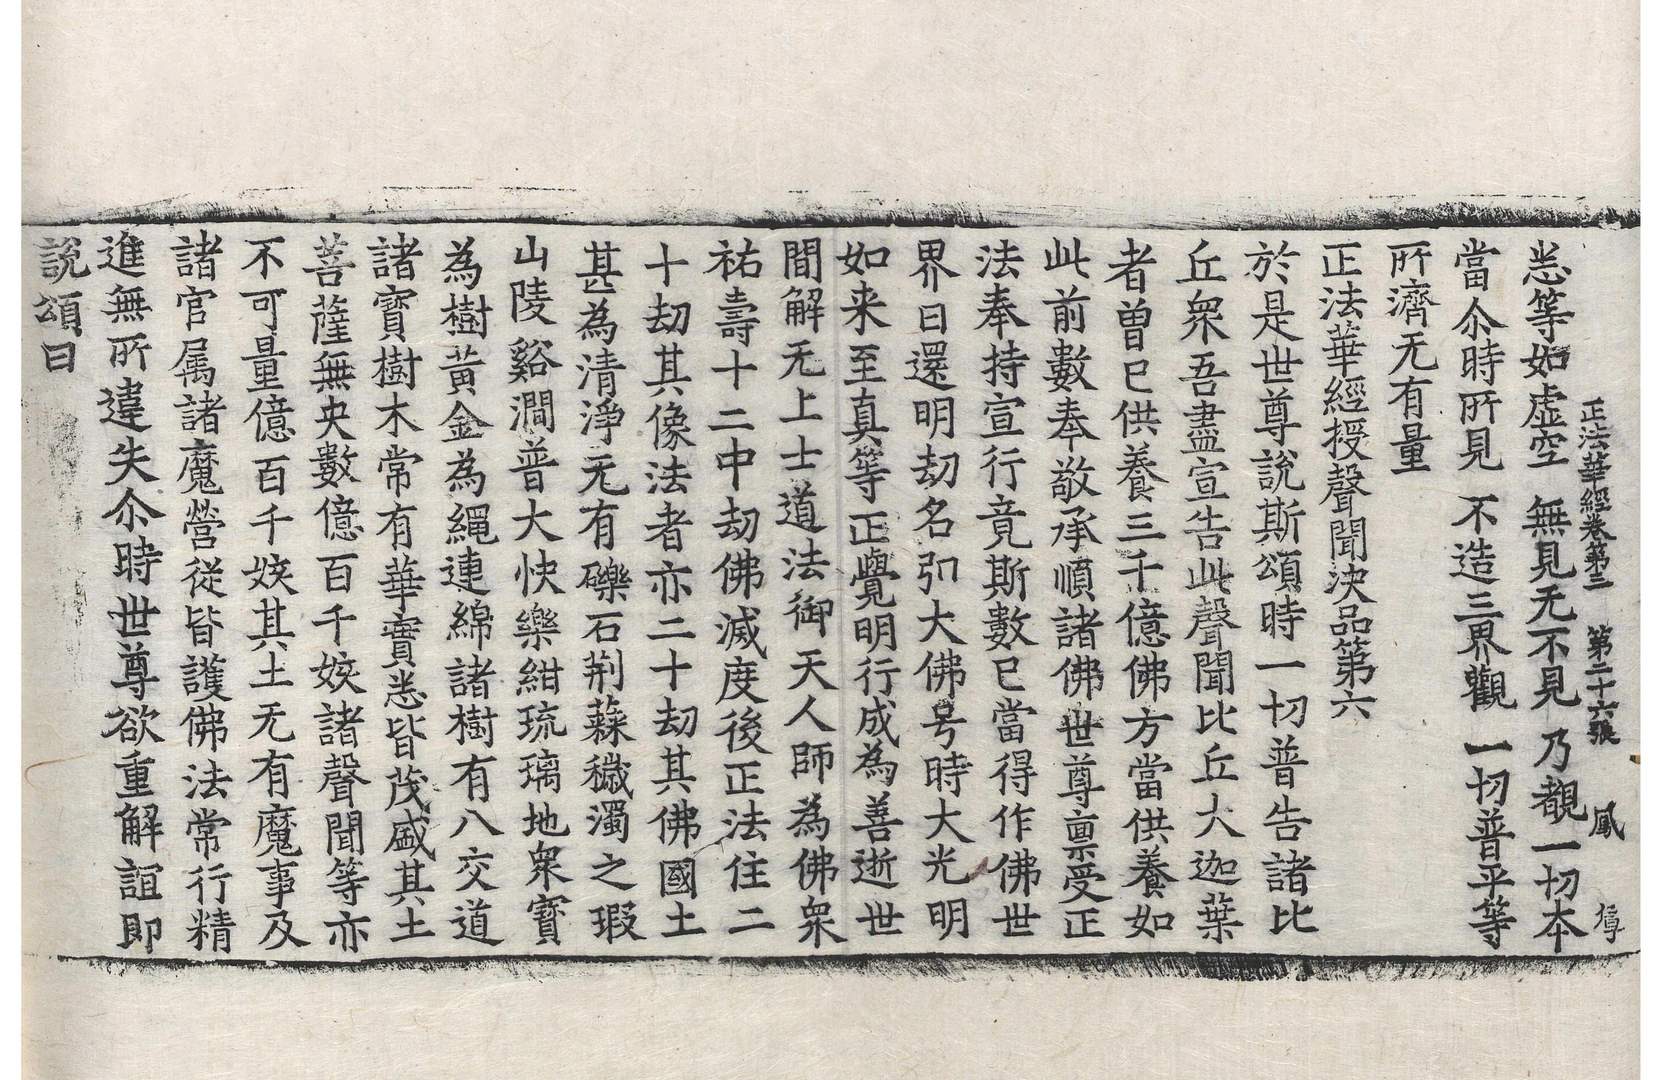 正法華經卷第三 第二十六張 鳳
悉等如虛空 無見无不見 乃覩一切本
當尒時所見 不造三界觀 一切普平等
所濟无有量
正法華經授聲聞決品第六
於是世尊說斯頌時一切普告諸比
丘眾吾盡宣告此聲聞比丘大迦葉
者曾已供養三千億佛方當供養如
此前數奉敬承順諸佛世尊稟受正
法奉持宣行竟斯數已當得作佛世
界曰還明劫名弘大佛号時大光明
如来至真等正覺明行成為善逝世
間解无上士道法御天人師為佛眾
祐壽十二中劫佛滅度後正法住二
十劫其像法者亦二十劫其佛國土
甚為清淨无有礫石荊蕀穢濁之瑕
山陵谿澗普大快樂紺琉璃地眾寶
為樹黃金為繩連綿諸樹有八交道
諸寶樹木常有華實悉皆茂盛其土
菩薩無央數億百千姟諸聲聞等亦
不可量億百千姟其土无有魔事及
諸官属諸魔營從皆護佛法常行精
進無所違失尒時世尊欲重解誼即
說頌曰